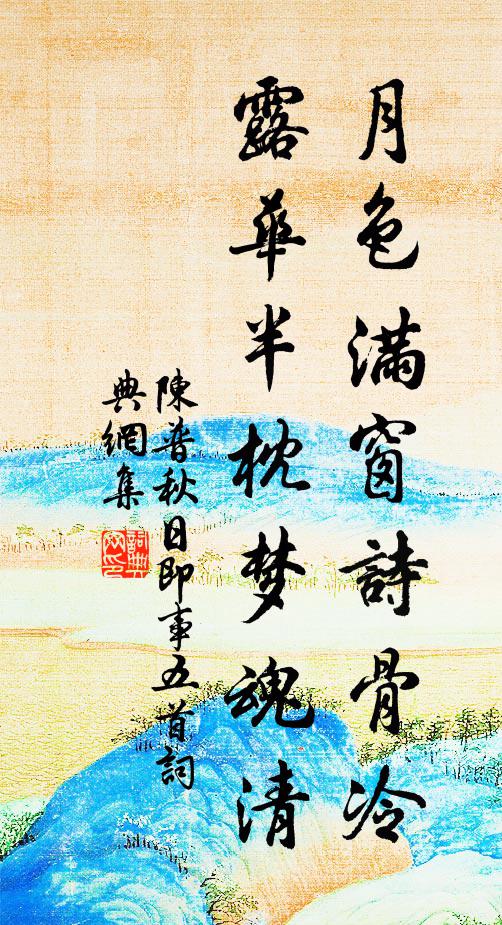 月色滿窗詩骨冷
露華半枕梦魂清
陳普秋日即事五首詞
典網集
詞典網印